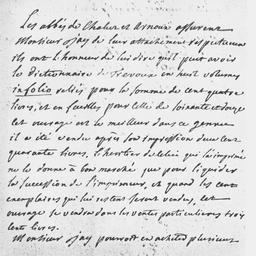 Les abbés de Chalier et Arnoux assurent
Monsieur Jay de leur attachement respectueux
ils ont l'honneur de lui dire qu'il peut avoir
le dictionnaire de Trevoux en huit volumes
infolio reliés pour la somme de cent quatre
livres, et en feuilles pour celle de soixante et douze
cet ouvrage est le meilleur dans ce genre
il a été vendu après son impression deux cent
quarante livres. l'heritier de celui qui l'a imprimé
ne le donne à bon marché que pour liquider
la succession de l'imprimeur, et quand les cent
exemplaires qui lui restent seront vendus, cet
ouvrage se vendra dans les ventes particulieres trois
cent livres.
Monsieur Jay pourroit en acheter plusieurs